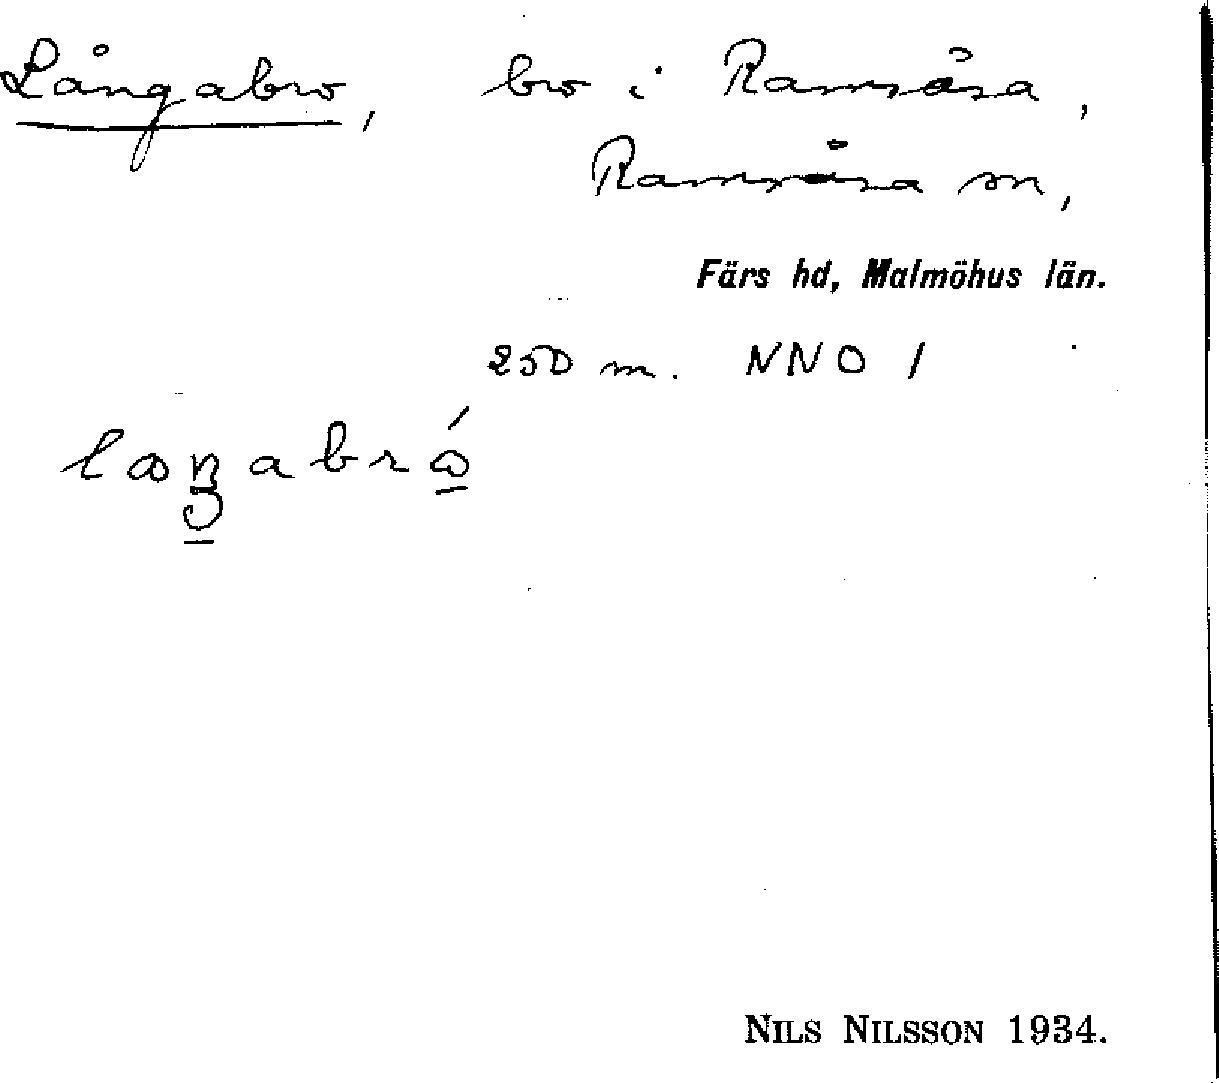 Långabro, bro i Ramsåsa,
Ramsåsa sn,
Färs hd, Malmöhus län.
250 m. NNO 1
NILS NILSSON 1934.